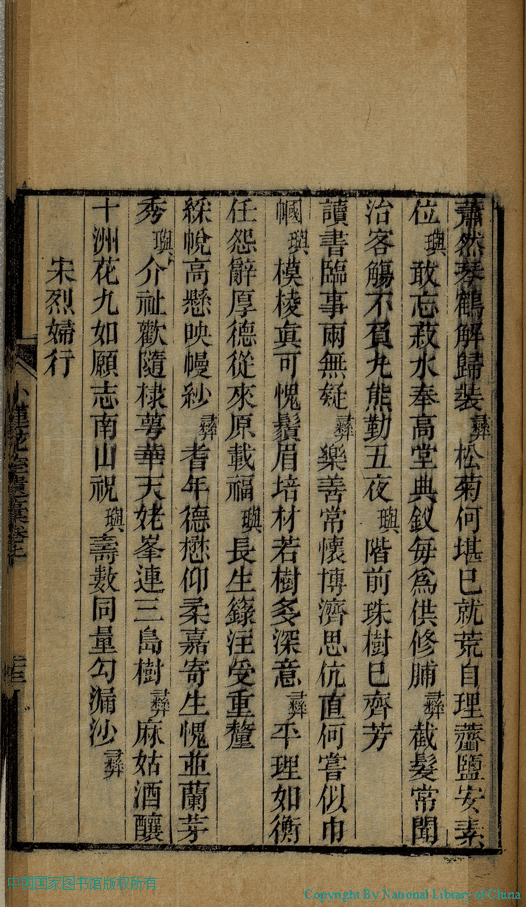 蕭然琴鶴解歸裝彝松菊何堪已就荒自理虀鹽安素
位璵敢忘菽水奉高堂典釵每爲供修脯彝截髮常聞
治客觴不負丸熊勤五夜璵階前珠樹已齊芳
讀書臨事兩無疑彝樂善常懷博濟思伉直何嘗似巾
幗璵模棱真可愧鬚眉培材若樹多深意彝平理如衡
任怨辭厚德從來原載福璵長生籙注受重釐
綵帨高懸映幔紗彝耆年德懋仰柔嘉寄生愧並蘭芽
秀璵介祉歡隨棣萼華天姥峯連三島樹彝麻姑酒釀
十洲花九如願志南山祝璵壽數同量勾漏沙彝
宋烈婦行
小蓮花室遺稾卷上
中国国家图书馆版权所有
Copyright By National Library of China